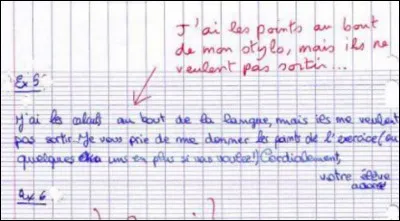 J'ai les points au bout
de mon stylo, mais ils ne
veulent pas sortir...
Ex 5
J'ai les calculs au bout de la langue, mais ils ne veulent
pas sortir. Je vous prie de me donner les points de l'exercice (ou
quelques uns en plus si vous voulez!) Cordialement,
votre élève
adorée
Ex 6